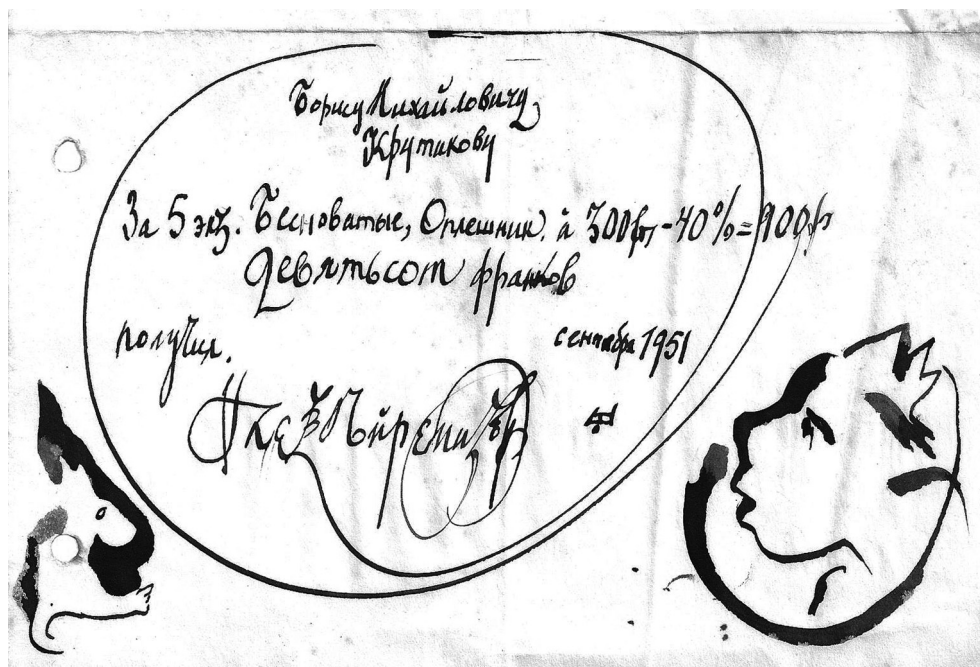 Борису Михайловичу
Крутикову
За 5 экз. Бесноватые, Оплешник. à 300 фр - 40% = 900 ф
Девятьсот франков
получил.
сентября 1951